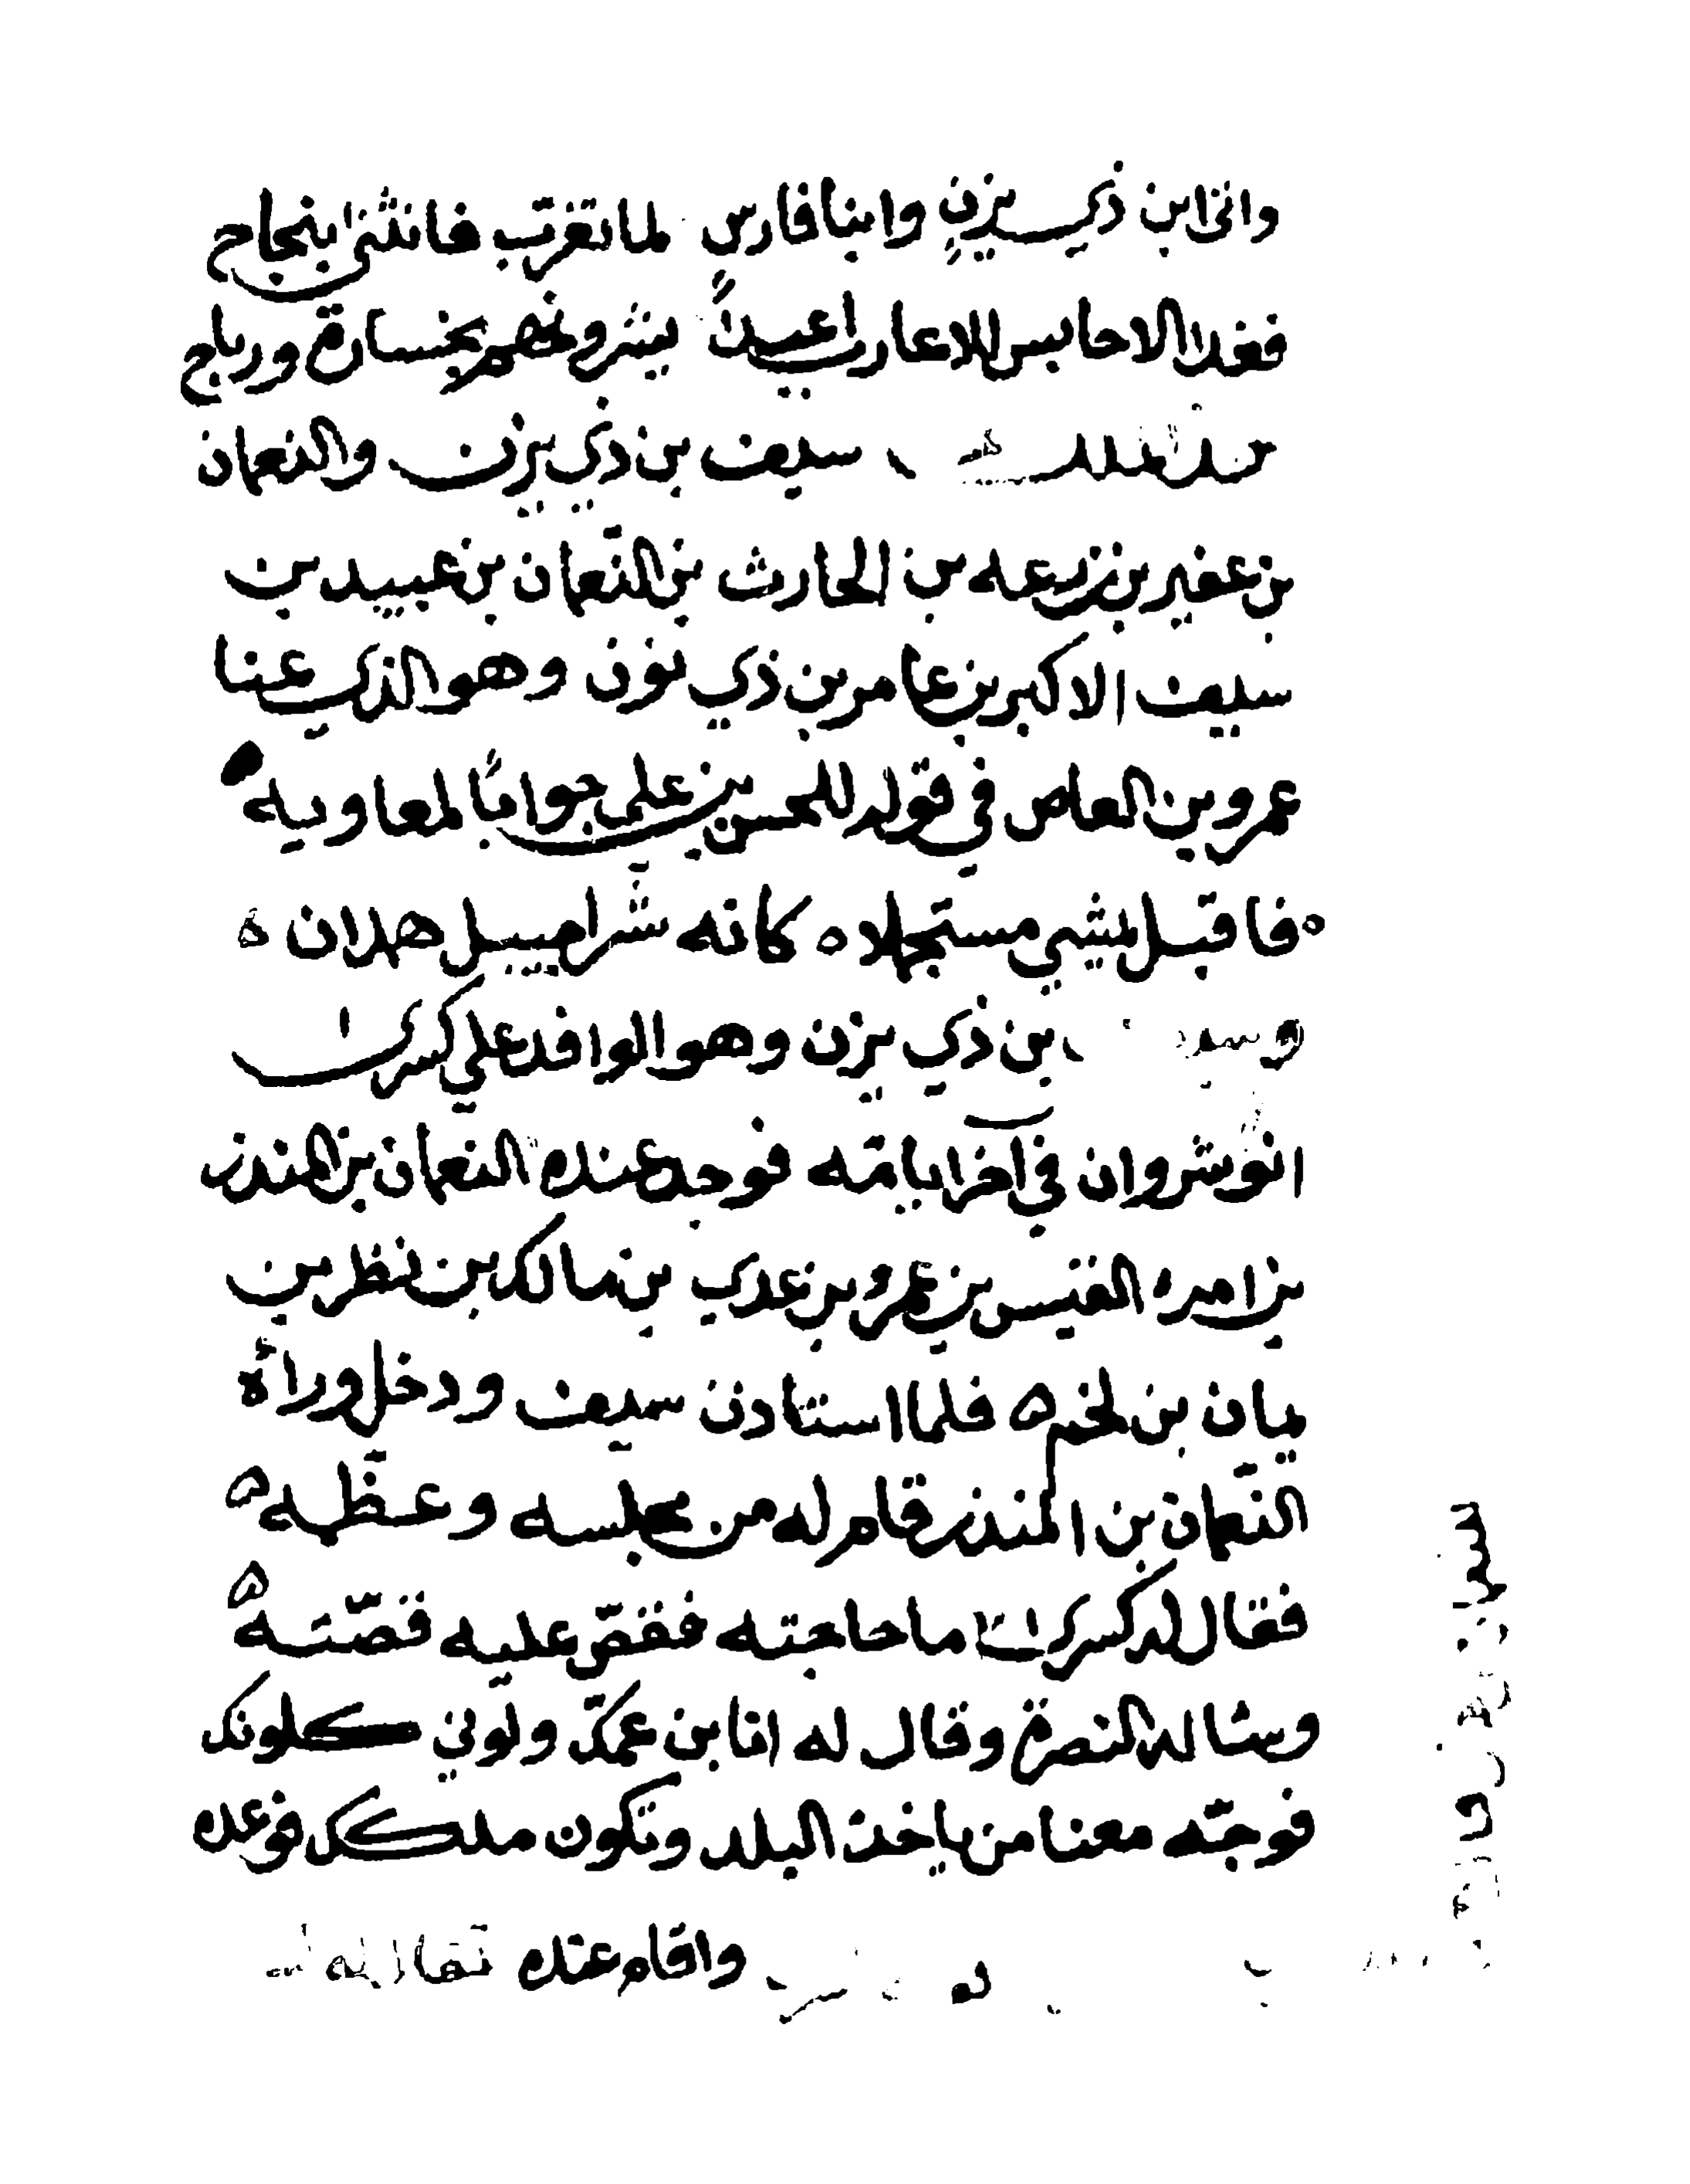 واتى ابن ذي يزن وابنا فارس لما تغرب فانثنى بنجاح
فغدا الاحابس للاعارب اعبداً يشرونهم بخسارة ورباح
سيف بن ذي يزن والنعمان
بن عفير بن زرعه بن الحارث بن النعمان بن عبيد بن
سيف الاكبر بن عامر بن ذي يزن وهو الذي عنا
عمرو بن العاص في قوله للحسن بن علي جوابًا لمعاويه
فاقبل يمشي مستجهلا ه كانه شراحبيل هدان ه
بن ذي يزن وهو الوافد على كسرى
انوشروان في آخر ايامه فوجد عنده النعمان بن المنذر
بن امرء القيس بن عمرو بن عدي بن مالك بن نظر بن
بن لخم ه فلما استاذن سيف ودخل وراأه
النعمان بن المنذر قام له من مجلسه وعظمه ه
فقال له كسرى ما حاجته فقص عليه قصّته ه
وساله النصرة وقال له انا بن عمك ولوني كلونك
فوجّه معنا من ياخذ البلد وتكون ملكك فوعده
واقام عنده